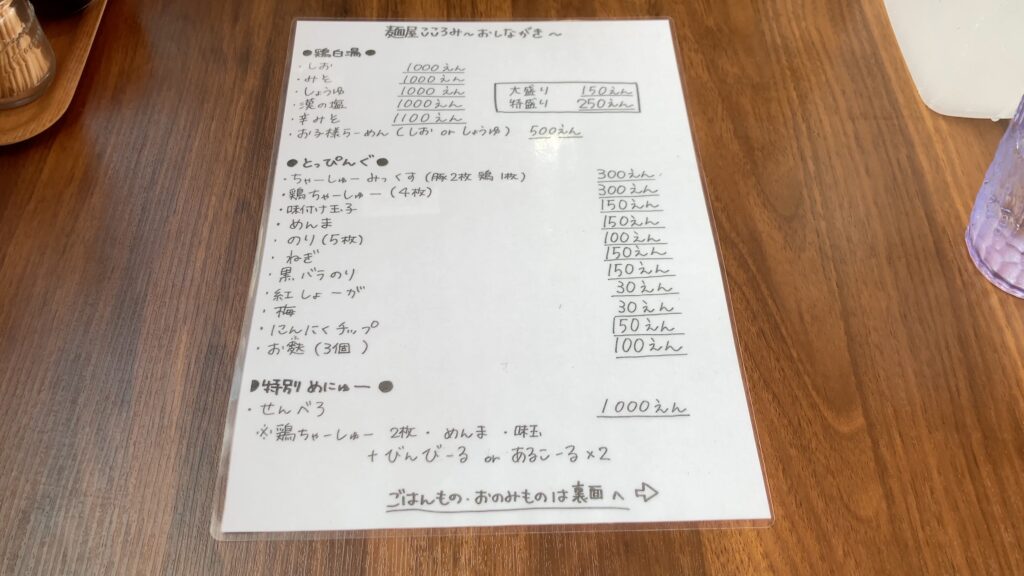 麺屋こころみ～おしながき～
●鶏白湯●
・しお 1000えん
・みそ 1000えん
・しょうゆ 1000えん
・漢の塩 1000えん
・辛みそ 1100えん
大盛り 150えん
特盛り 250えん
・お子様らーめん(しお or しょうゆ) 500えん
●とっぴんぐ●
・ちゃーしゅーみっくす(豚2枚 鶏1枚) 300えん
・鶏ちゃーしゅー(4枚) 300えん
・味付け玉子 150えん
・めんま 150えん
・のり(5枚) 100えん
・ねぎ 150えん
・黒バラのり 150えん
・紅しょーが 30えん
・梅 30えん
・にんにくチップ 150えん
・お麩(3個) 100えん
●特別めにゅー●
・せんべろ 1000えん
※鶏ちゃーしゅー 2枚・めんま・味玉
+びんびーる or あるこーる×2
ごはんもの・おのみものは裏面へ⇨